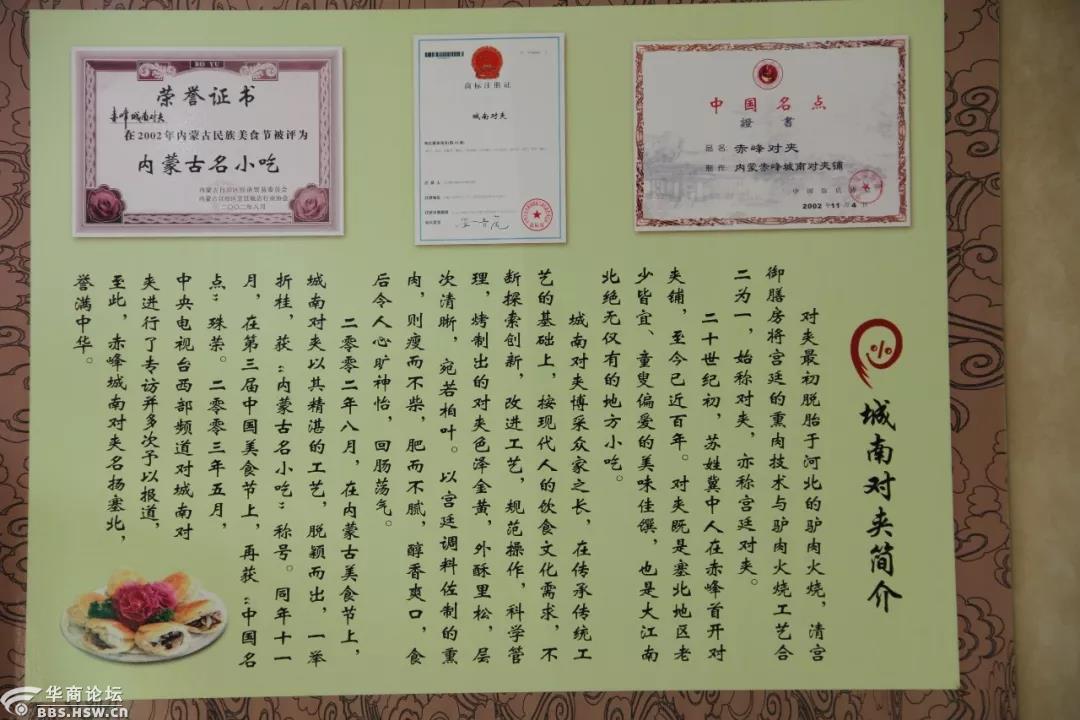 BO YU
荣誉证书
赤峰城南对夹
在2002年内蒙古民族美食节被评为
内蒙古名小吃
内蒙古自治区经济贸易委员会
内蒙古自治区烹饪饭店行业协会
二〇〇二年八月
商标注册证
城南对夹
中国名点
證書
品名 赤峰对夹
制作 内蒙赤峰城南对夹铺
2002年11月4日
城南对夹简介
对夹最初脱胎于河北的驴肉火烧，清宫
御膳房将宫廷的熏肉技术与驴肉火烧工艺合
二为一，始称对夹，亦称宫廷对夹。
二十世纪初，苏姓冀中人在赤峰首开对
夹铺，至今已近百年。对夹既是塞北地区老
少皆宜、童叟偏爱的美味佳馔，也是大江南
北绝无仅有的地方小吃。
城南对夹博采众家之长，在传承传统工
艺的基础上，按现代人的饮食文化需求，不
断探索创新，改进工艺，规范操作，科学管
理，烤制出的对夹色泽金黄，外酥里松，层
次清晰，宛若柏叶。以宫廷调料佐制的熏
肉，则瘦而不柴，肥而不腻，醇香爽口，食
后令人心旷神怡，回肠荡气。
二零零二年八月，在内蒙古美食节上，
城南对夹以其精湛的工艺，脱颖而出，一举
折桂，获“内蒙古名小吃”称号。同年十一
月，在第三届中国美食节上，再获“中国名
点”殊荣。二零零三年五月，
中央电视台西部频道对城南对
夹进行了专访并多次予以报道，
至此，赤峰城南对夹名扬塞北，
誉满中华。
华商论坛
BBS.HSW.CN